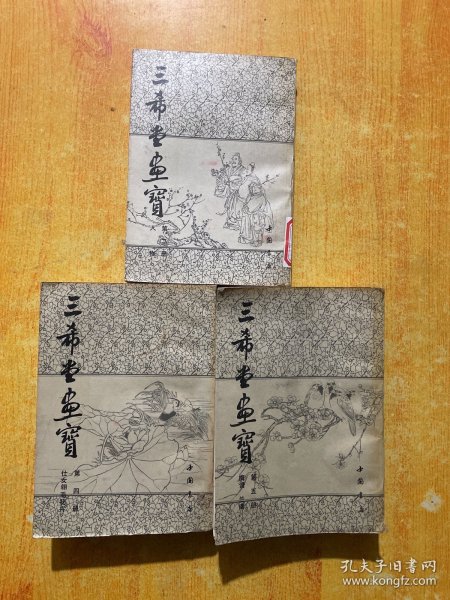 三希堂画寶
第
册
中国
店
三希堂画寶
第四册
仕女翎毛花卉
中国书店
三希堂画寶
第五册
中国书店
孔夫子旧书网
www.kongfz.com